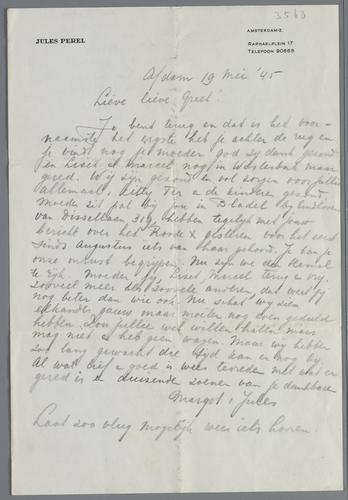 3563
JULES PEREL
AMSTERDAM-Z.
RAPHAELPLEIN 17
TELEFOON 90665
A/dam 19 Mei '45
Lieve lieve Greet!
Je bent terug en dat is het voor-
naamste het ergste heb je achter de rug en
je vindt nog je moeder god zij dank gezond
en Liset en Marcel nog in Westerbork maar
goed. Wij zijn gezond en vol zorgen voor jullie
allemaal. Kitty Ter en de kinderen gezond
Moeder zit pal bij jou in Bladel bij Eindhoven
van Disselaan 309 hebben tegelijk met jouw
bericht over het Roode X gisteren voor het eerst
sinds Augustus iets van haar gehoord. Je kan je
onze onrust begrijpen. Nu zijn we den Hemel
te rijk. Moeder jij Liset Marcel terug en vrij.
zooveel meer dan zoovele anderen, dat weet jij
nog beter dan wie ook. Nu schat wij zien
elkander gauw maar moeten nog even geduld
hebben. Zou jullie wel willen halen maar
mag niet en heb geen wagen. Maar wij hebben
zoo lang gewacht die tijd kan er nog bij
Al wat lief en goed is wees tevreden met wat er
gered is en duizende zoenen van je dankbare
Margot & Jules
Laat zoo vlug mogelijk weer iets hooren.